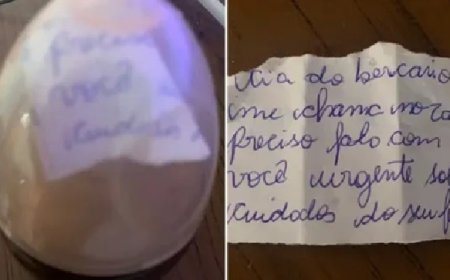 preciso
você
cuidados
tia do bercario
me chama no za
preciso falo com
você urgente so
cuidados do seu f